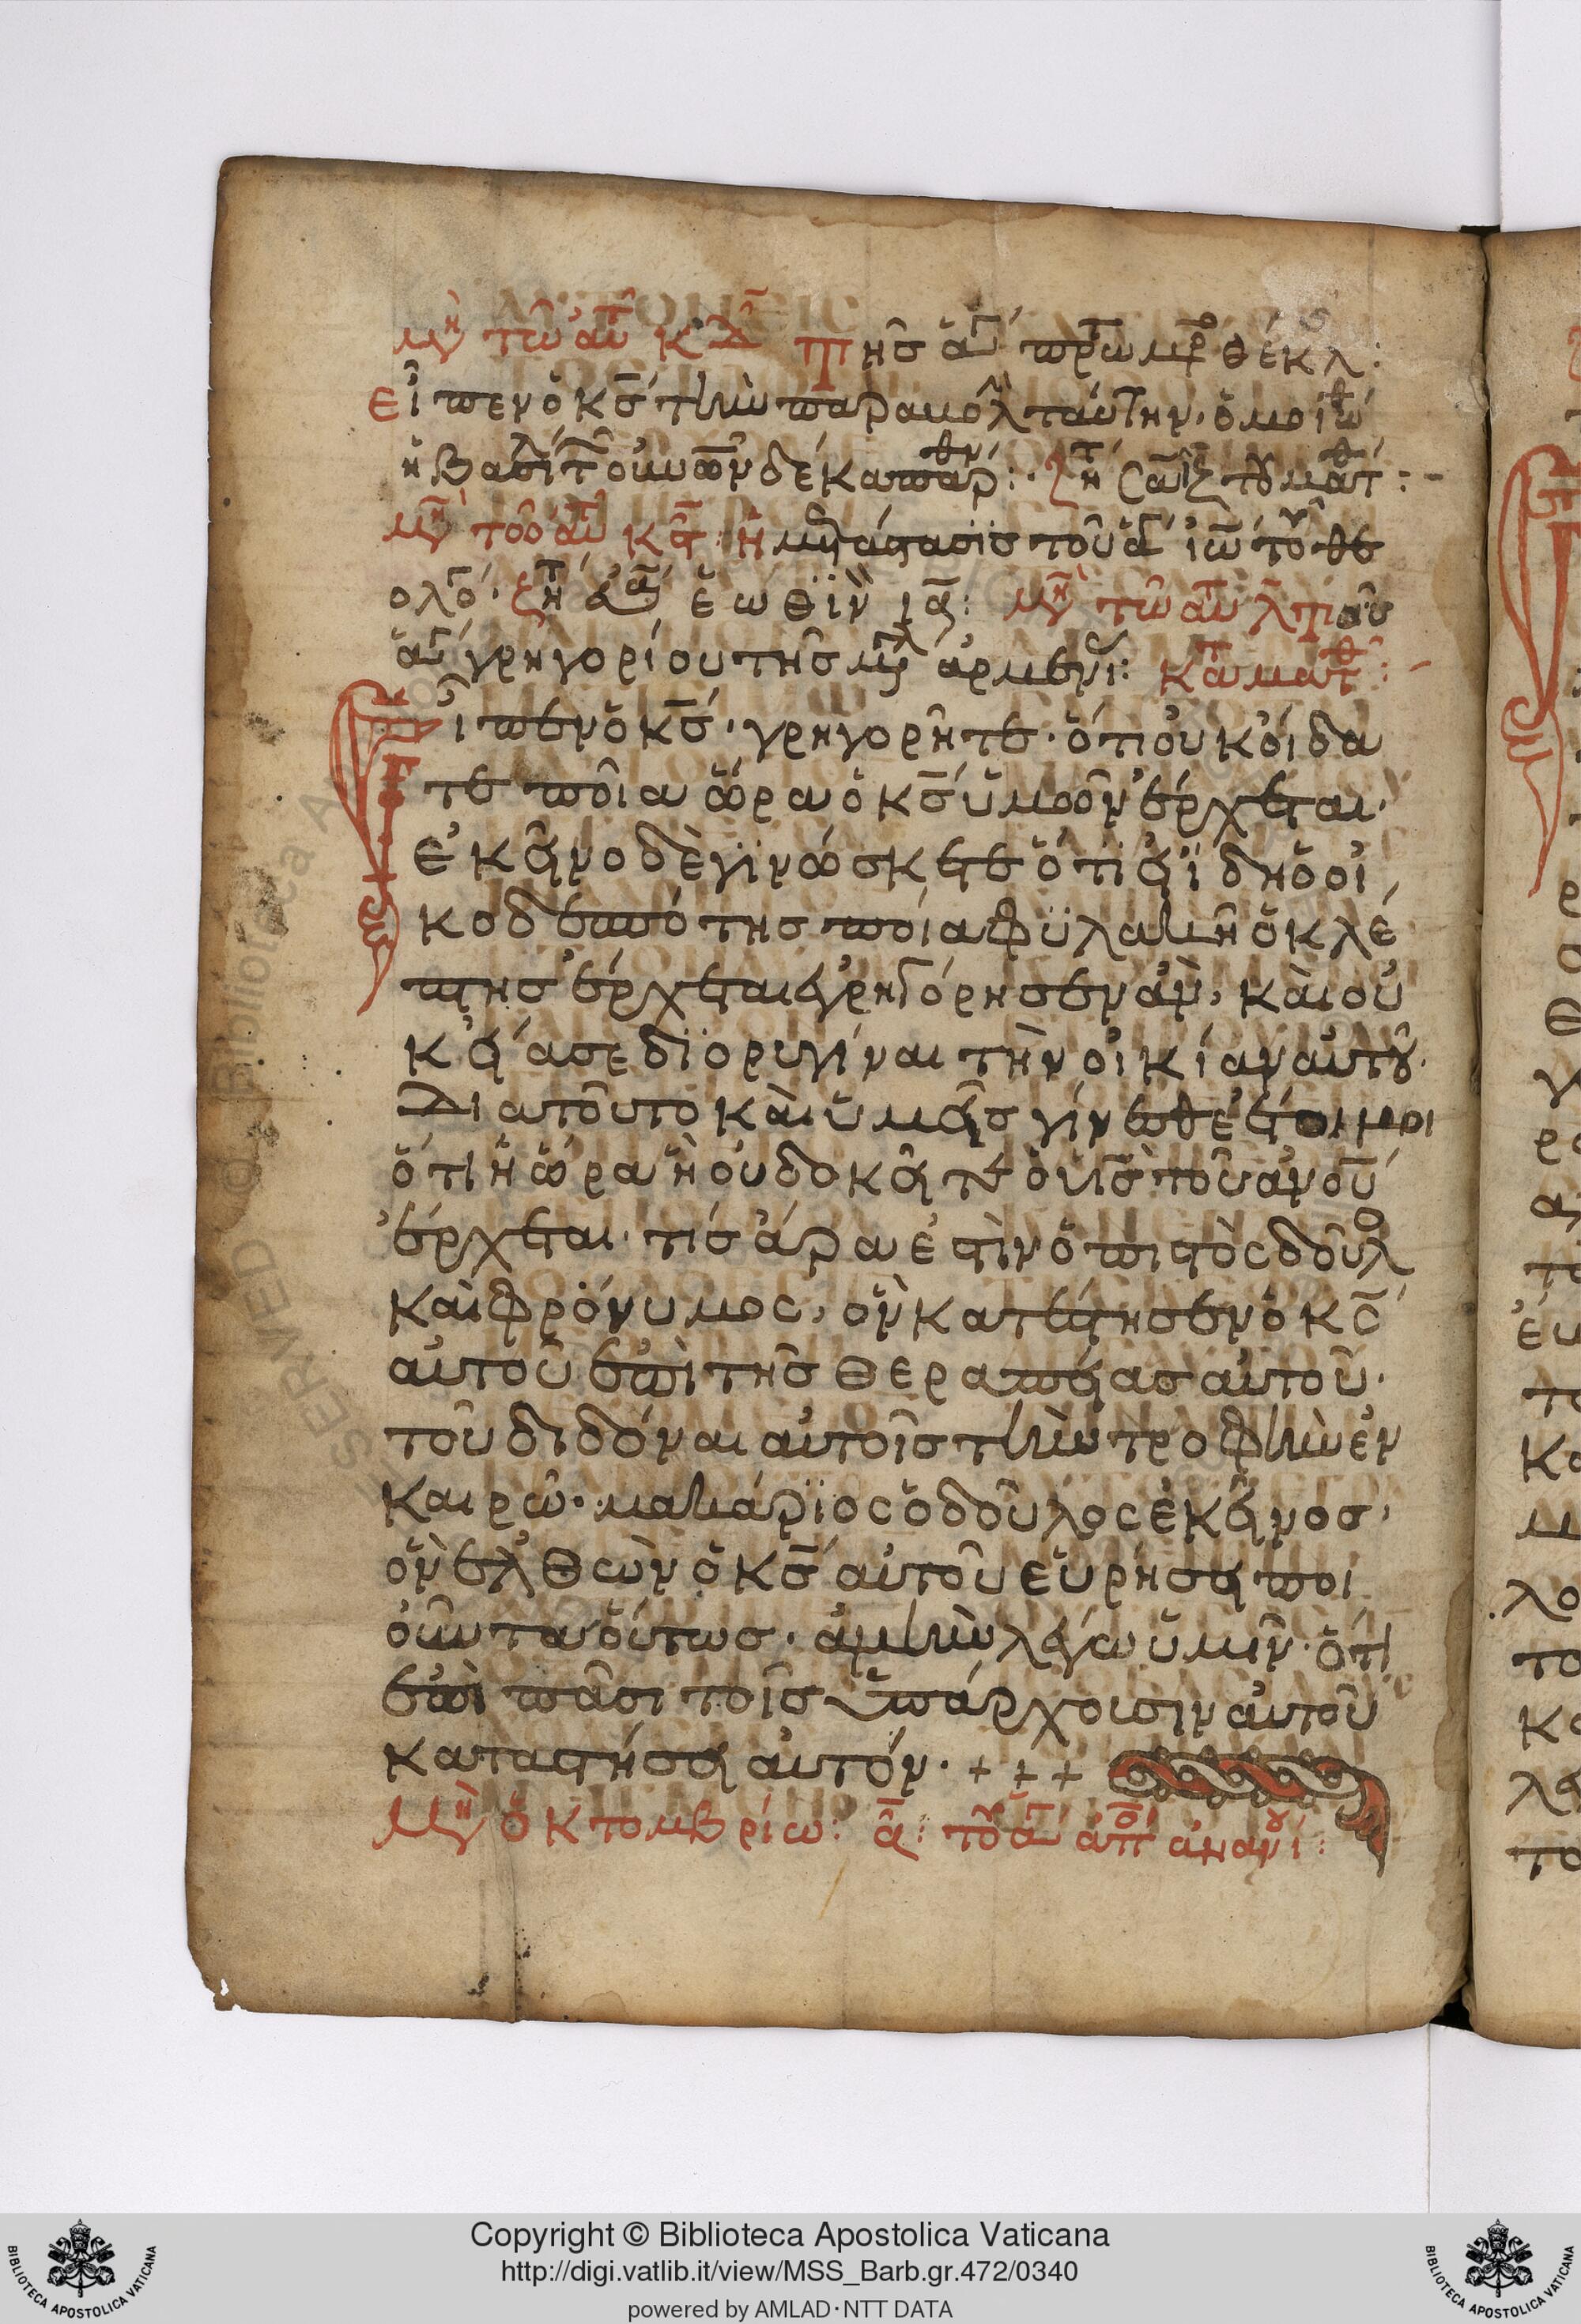 μην τῶ αὐτ κδ της ἁγ πρωτωμρ θέκλ:
εἶπεν ὁ κς τὴν παραβολ ταύτην· ὁμοιωθ
ἡ βασιλ τ οὐνων δέκα παρθεν: ζητ σαβ ιζ τοῦ ματθ:
μην τοῦ αὐτ κς: ἡ μετάστασις τοῦ ἁγ ἰω τοῦ θε
ολό· ζητ ἑωθιν ια: μην τῶ αὐτ λ τοῦ
ἁγ γρηγορίου τῆς μεγ ἀρμενι: κατ ματθ:
Εἶπεν ὁ κς· γρηγορῆτε· ὅτι οὐκ οἴδα
τε ποῖα ὥρα ὁ κς ὑμῶν ἔρχεται·
ἐκεῖνο δὲ γινώσκετε ὅτι εἰ ἴδη ὁ οἰ
κοδεσπότης ποία φυλακῆ ὁ κλέ
πτης ἔρχεται ἐγρηγόρησεν ἂν, καὶ οὐ
κ εἴασε διορυγίναι τὴν οἰκίαν αὐτοῦ·
Διατοῦτο καὶ ὑμεῖς γίνεσθε ἕτοιμοι
ὅτι ἡ ὥρα ἡ οὐ δοκεῖτε ὁ υἱς τοῦ ἀνου
ἔρχεται· τίς ἄρα ἐστὶν ὁ πιστὸς δοῦλο
καὶ φρόνυμος, ὃν κατέστησεν ὁ κς
αὐτοῦ ἐπὶ τῆς θεραπείας αὐτοῦ·
τοῦ διδόναι αὐτοῖς τὴν τροφὴν ἐν
καιρῶ· μακάριος ὁ δοῦλος ἐκεῖνος,
ὃν ἐλθὼν ὁ κς αὐτοῦ εὑρήσει ποι
οῦντα οὕτως· ἀμὴν λέγω ὑμῖν· ὅτι
ἐπὶ πᾶσι τοῖς ὑπάρχουσιν αὐτοῦ
καταστήσει αὐτόν· + + +
Μην ὀκτομβρίω: α: τοῦ ἁγ ἀποπ ἀνανι:
Copyright © Biblioteca Apostolica Vaticana
http://digi.vatlib.it/view/MSS_Barb.gr.472/0340
powered by AMLAD·NTT DATA
BIBLIOTECA APOSTOLICA VATICANA
BIBLIOTECA APOSTOLICA VATICANA